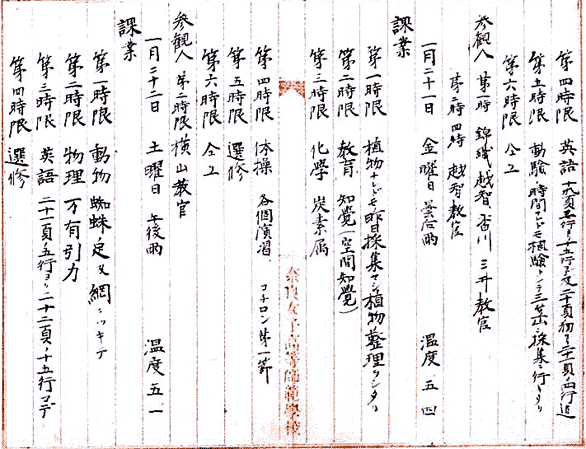 第四時限 英語 十九頁五行ヨリ十五行マデ又二十頁初ヨリ二十一頁四行迄
第五時限 動験 時間ナレドモ植験トシテ三笠山ニ採集ニ行キタリ
第六時限 仝上
参観人 第一時 錦織 越智 香川 三井教官
第二時四時 越智教官
一月二十一日 金曜日 曇后雨 温度 五四
課業
第一時限 植物ナレドモ昨日採集セシ植物整理ヲシタリ
第二時限 教育 知覚(空間知覚)
第三時限 化學 炭素属
第四時限 体操 各個演習 コチロン第一節
第五時限 選修
第六時限 仝上
参観人 第二時限 横山教官
一月二十二日 土曜日 午後雨 温度 五一
課業
第一時限 動物 蜘蛛ノ足及網ニツキテ
第二時限 物理 万有引力
第三時限 英語 二十一頁ノ五行ヨリ二十二頁ノ十五行マデ
第四時限 選修
奈良女子高等師範學校